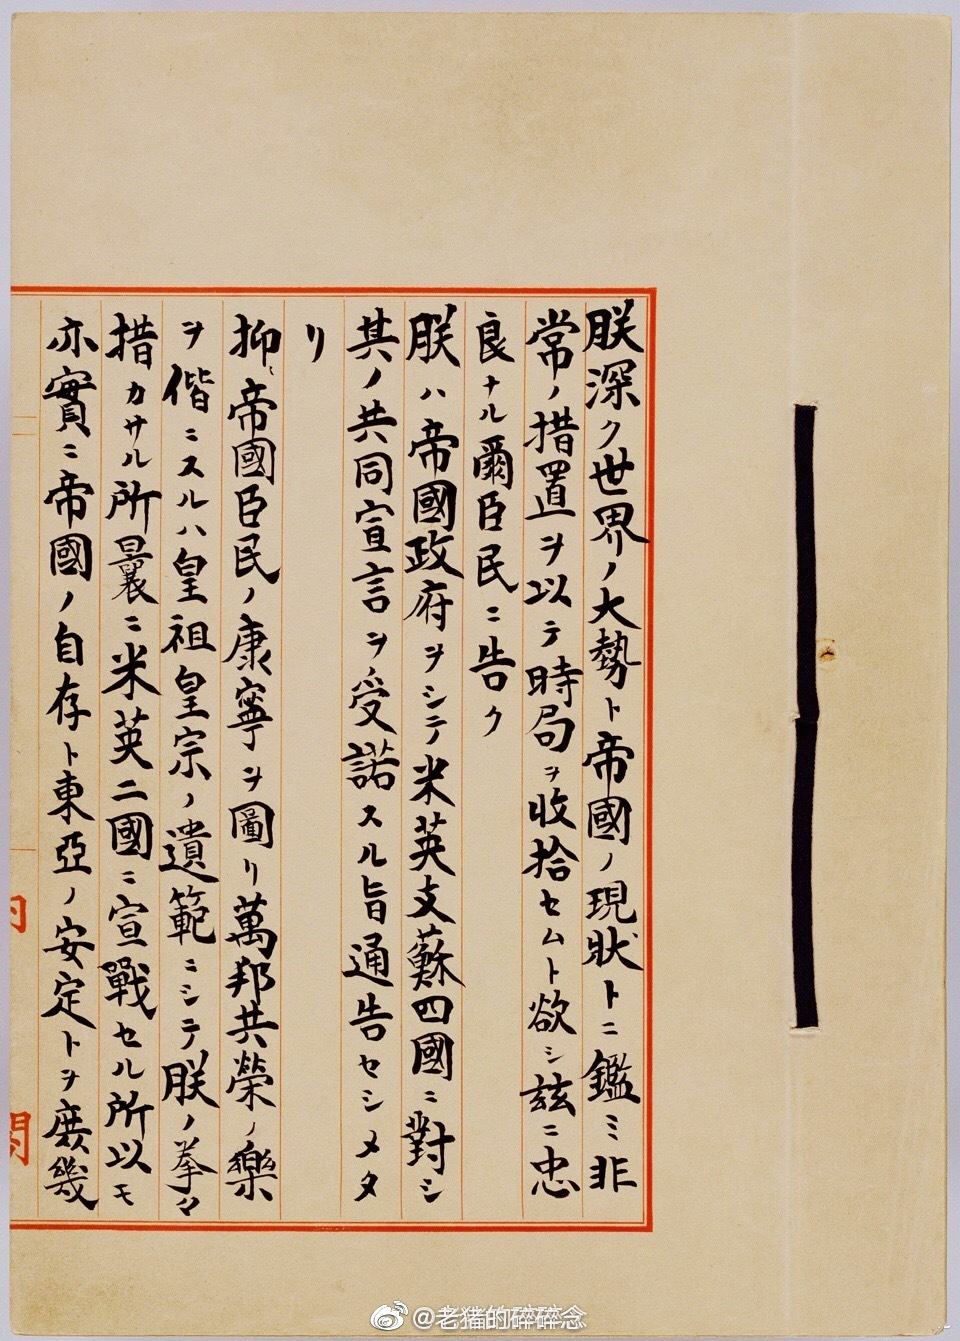 朕深ク世界ノ大勢ト帝國ノ現狀トニ鑑ミ非
常ノ措置ヲ以テ時局ヲ收拾セムト欲シ茲ニ忠
良ナル爾臣民ニ告ク
朕ハ帝國政府ヲシテ米英支蘇四國ニ對シ
其ノ共同宣言ヲ受諾スル旨通告セシメタ
リ
抑〻帝國臣民ノ康寧ヲ圖リ萬邦共榮ノ樂
ヲ偕ニスルハ皇祖皇宗ノ遺範ニシテ朕ノ拳々
措カサル所曩ニ米英二國ニ宣戰セル所以モ
亦實ニ帝國ノ自存ト東亞ノ安定トヲ庶幾
内
閣
@老猪的碎碎念